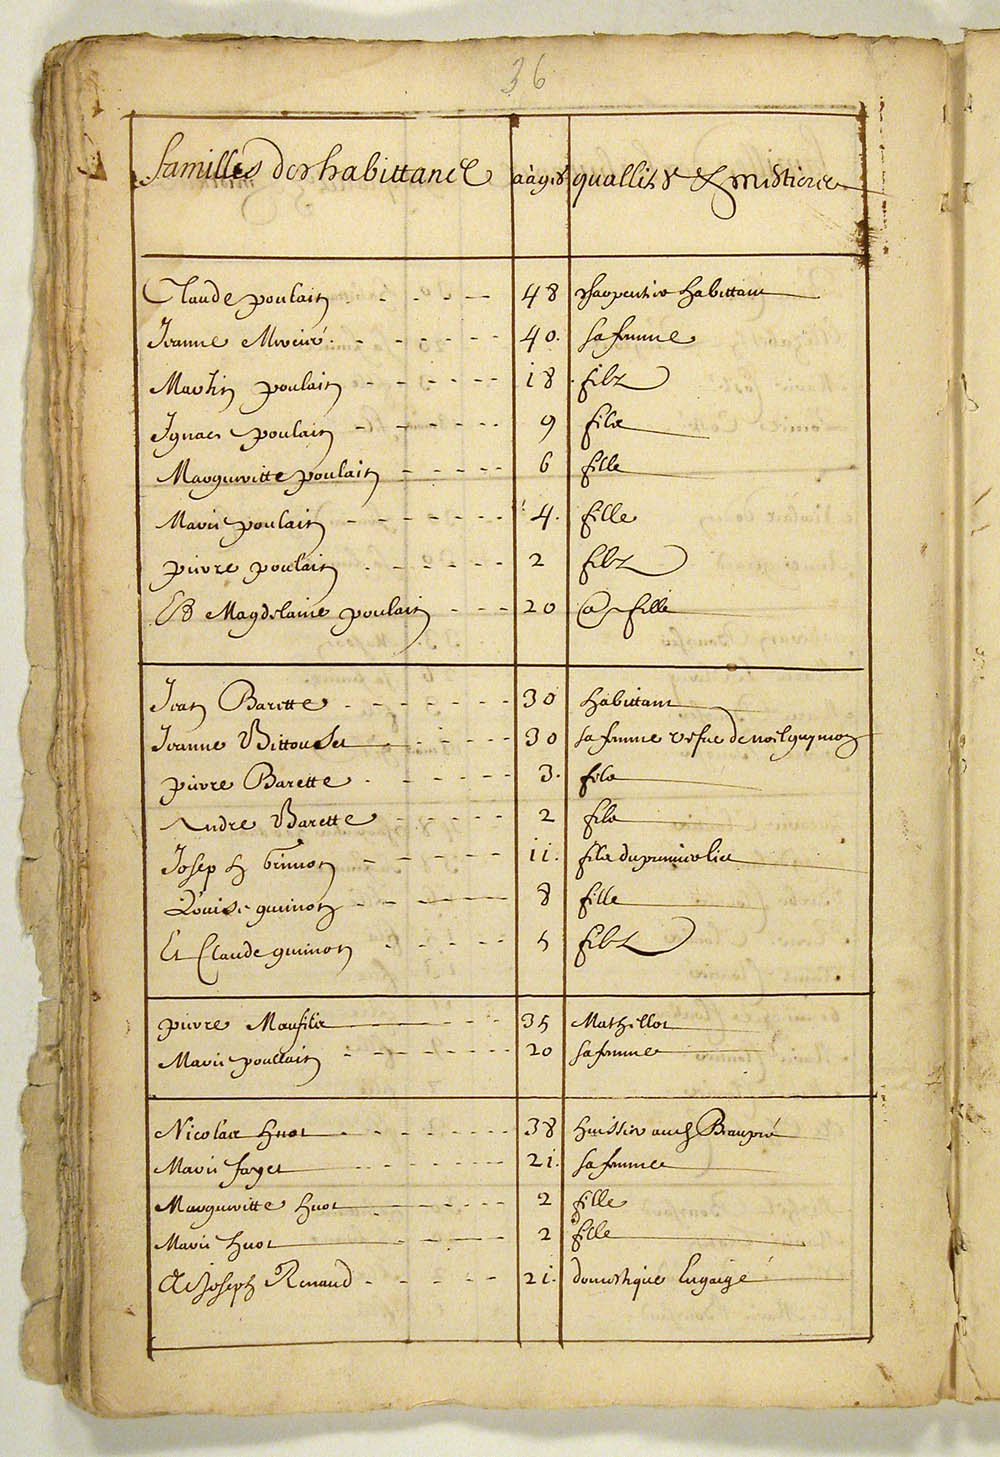 36
familles des habittans aàges quallités & mestiers
Claude poulain 48 charpentier habittant
Jeanne Mercier 40. sa femme
Martin poulain i8 filz
Ignace poulain 9 fils
Margueritte poulain 6 fille
Marie poulain 4. fille
pierre poulain 2 filz
Et Magdelaine poulain 20 fille
Jean Barette 30 habittant
Jeanne Bittouset 30 sa femme vefue de noel guymon
pierre Barette 3. fils
Andre Barette 2 fils
Joseph Guimon ii. fils du premier lict
Louise guimon 8 fille
Et Claude guimon 5 filz
pierre Maufilz 35 Mathellot
Marie poullain 20 sa femme
Nicolas huot 38 huissier au ch Beaupré
Marie fayet 2i. sa femme
Margueritte huot 2 fille
Marie huot 2 fille
Et Joseph Renaud 2i. domestique Engaigé